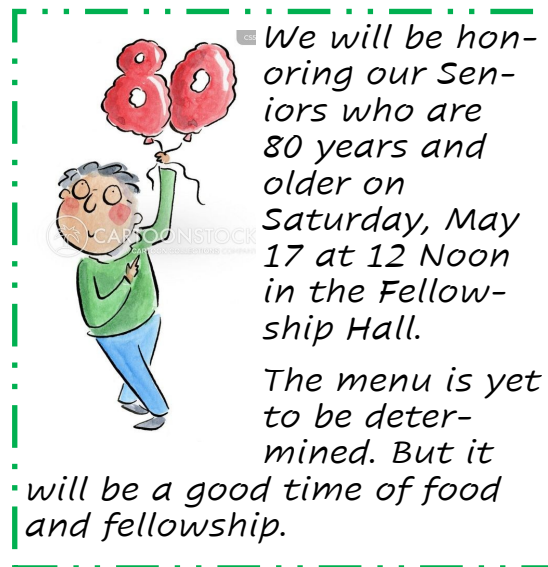 80
CSS
We will be hon-
oring our Sen-
iors who are
80 years and
older on
Saturday, May
17 at 12 Noon
in the Fellow-
ship Hall.
CARTOONSTOCK
The menu is yet
to be deter-
mined. But it
will be a good time of food
and fellowship.